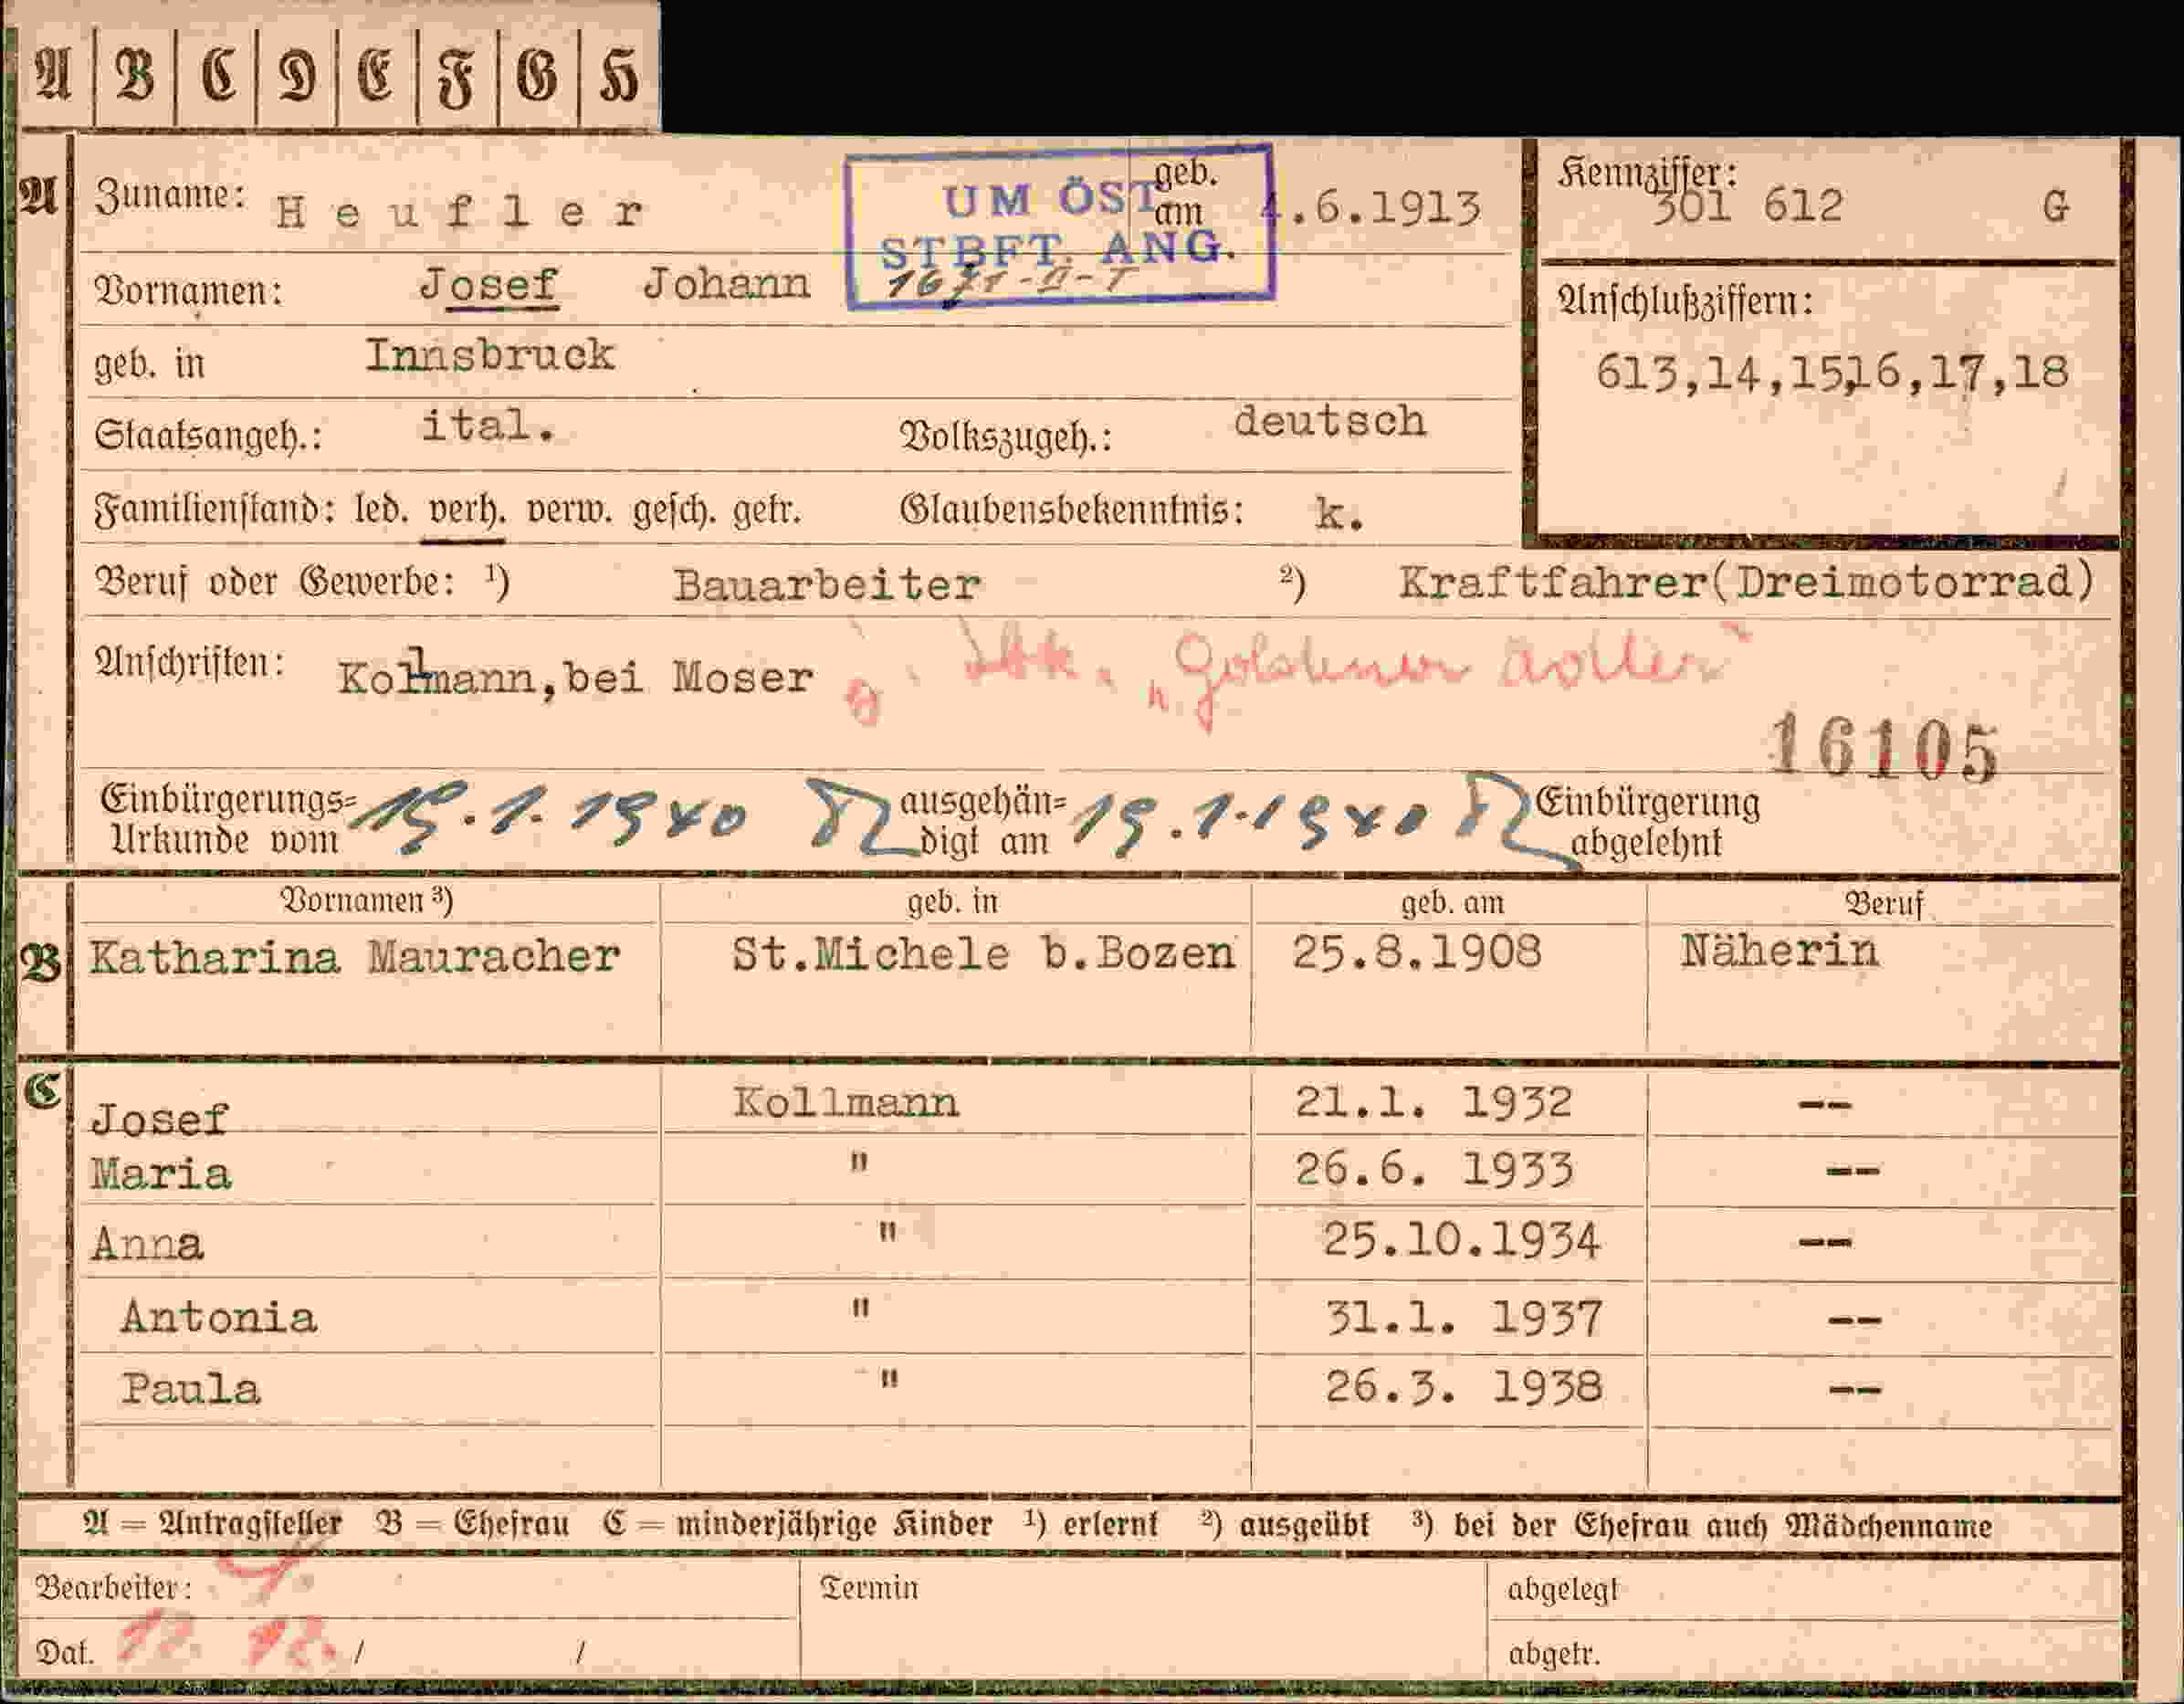 A B C D E F G H
A Zuname: Heufler geb. am .6.1913 Kennziffer: 301 612 G
UM ÖST
STBFT. ANG.
Vornamen: Josef Johann
Anschlußziffern:
geb. in Innsbruck
613,14,15,16,17,18
Staatsangeh.: ital. Volkszugeh.: deutsch
Familienstand: led. verh. verw. gesch. getr. Glaubensbekenntnis: k.
Beruf oder Gewerbe: ¹) Bauarbeiter ²) Kraftfahrer(Dreimotorrad)
Anschriften: Kollmann,bei Moser Ibk. „Goldener Adler"
16105
Einbürgerungs=Urkunde vom 19.1.1940 ausgehän=digt am 19.1.1940 Einbürgerung abgelehnt
Vornamen ³) geb. in geb. am Beruf
B Katharina Mauracher St.Michele b.Bozen 25.8.1908 Näherin
C Josef Kollmann 21.1. 1932 --
Maria " 26.6. 1933 --
Anna " 25.10.1934 --
Antonia " 31.1. 1937 --
Paula " 26.3. 1938 --
A = Antragsteller B = Ehefrau C = minderjährige Kinder ¹) erlernt ²) ausgeübt ³) bei der Ehefrau auch Mädchenname
Bearbeiter: Termin abgelegt
Dat. / / abgetr.